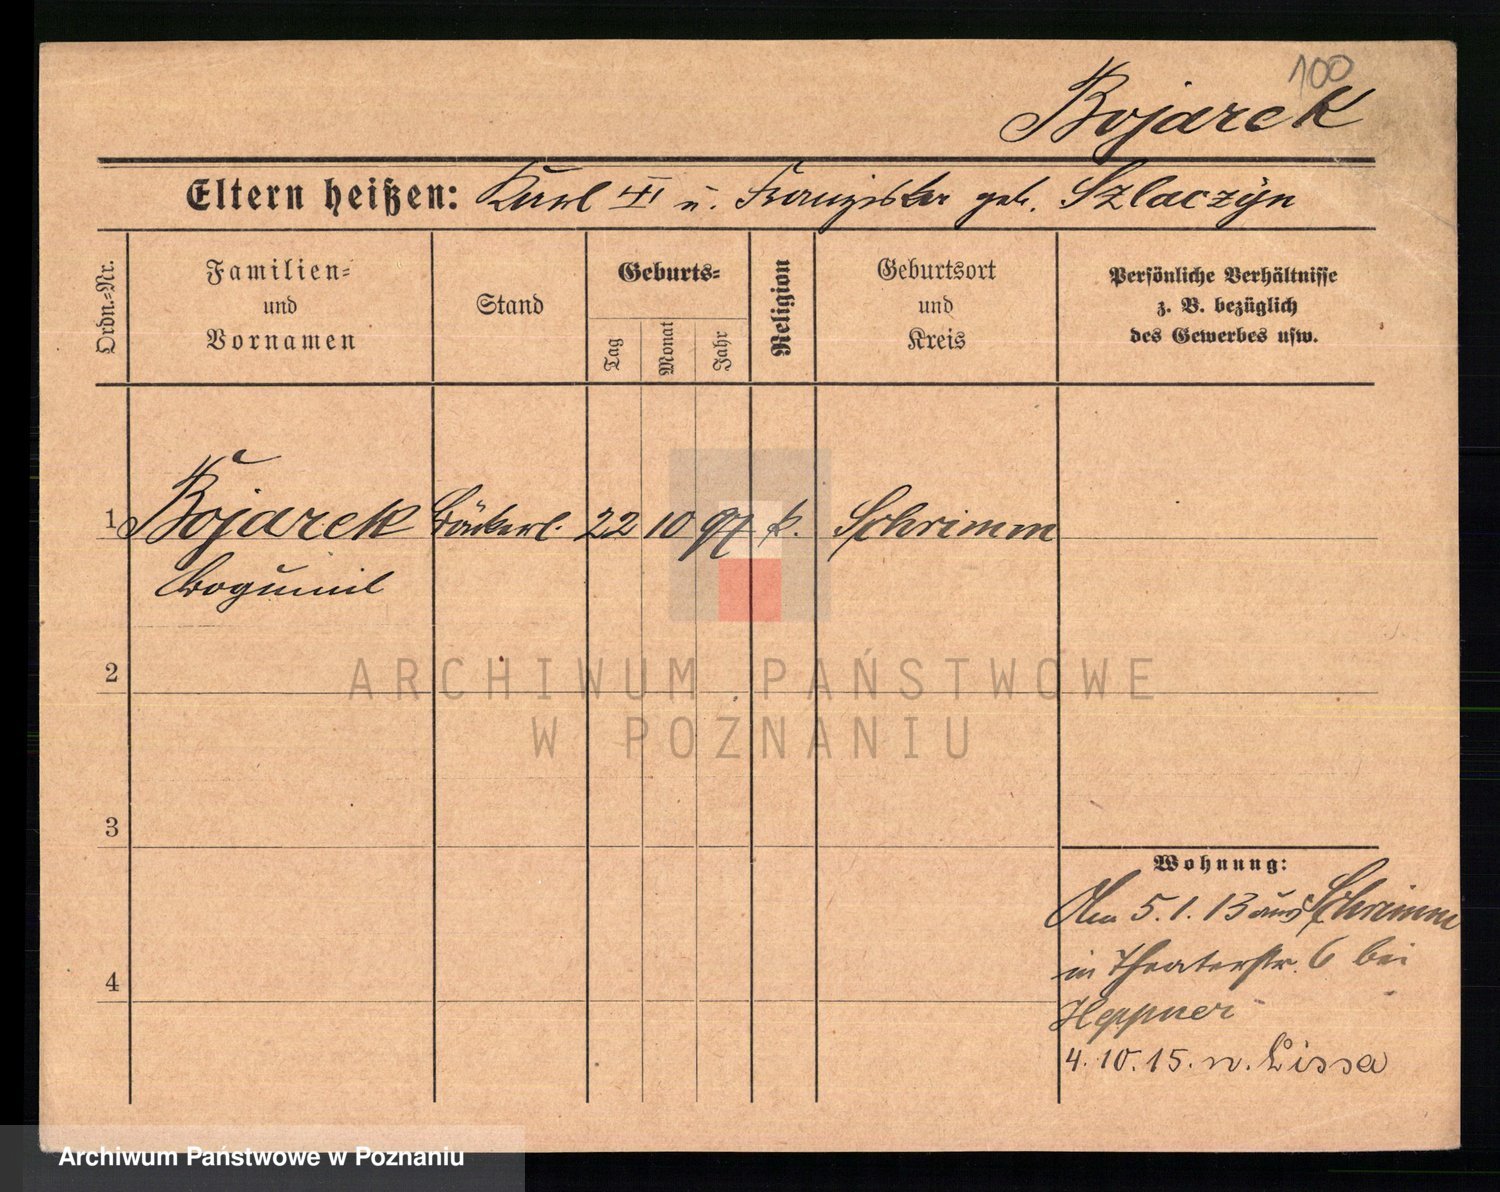 100
Bojarek
Eltern heißen: Karl III u. Franziska geb. Szlaczyn
Ordn.-Nr.
Familien-
und
Vornamen
Stand
Geburts-
Tag
Monat
Jahr
Religion
Geburtsort
und
Kreis
Persönliche Verhältnisse
z. B. bezüglich
des Gewerbes usw.
1 Bojarek Bäckerl. 22 10 97 k. Schrimm
Bogumil
2
3
4
Wohnung:
Am 5.1.13 aus Schrimm
in Theaterstr. 6 bei
Heppner
4.10.15. n. Lissa
ARCHIWUM PAŃSTWOWE
W POZNANIU
Archiwum Państwowe w Poznaniu